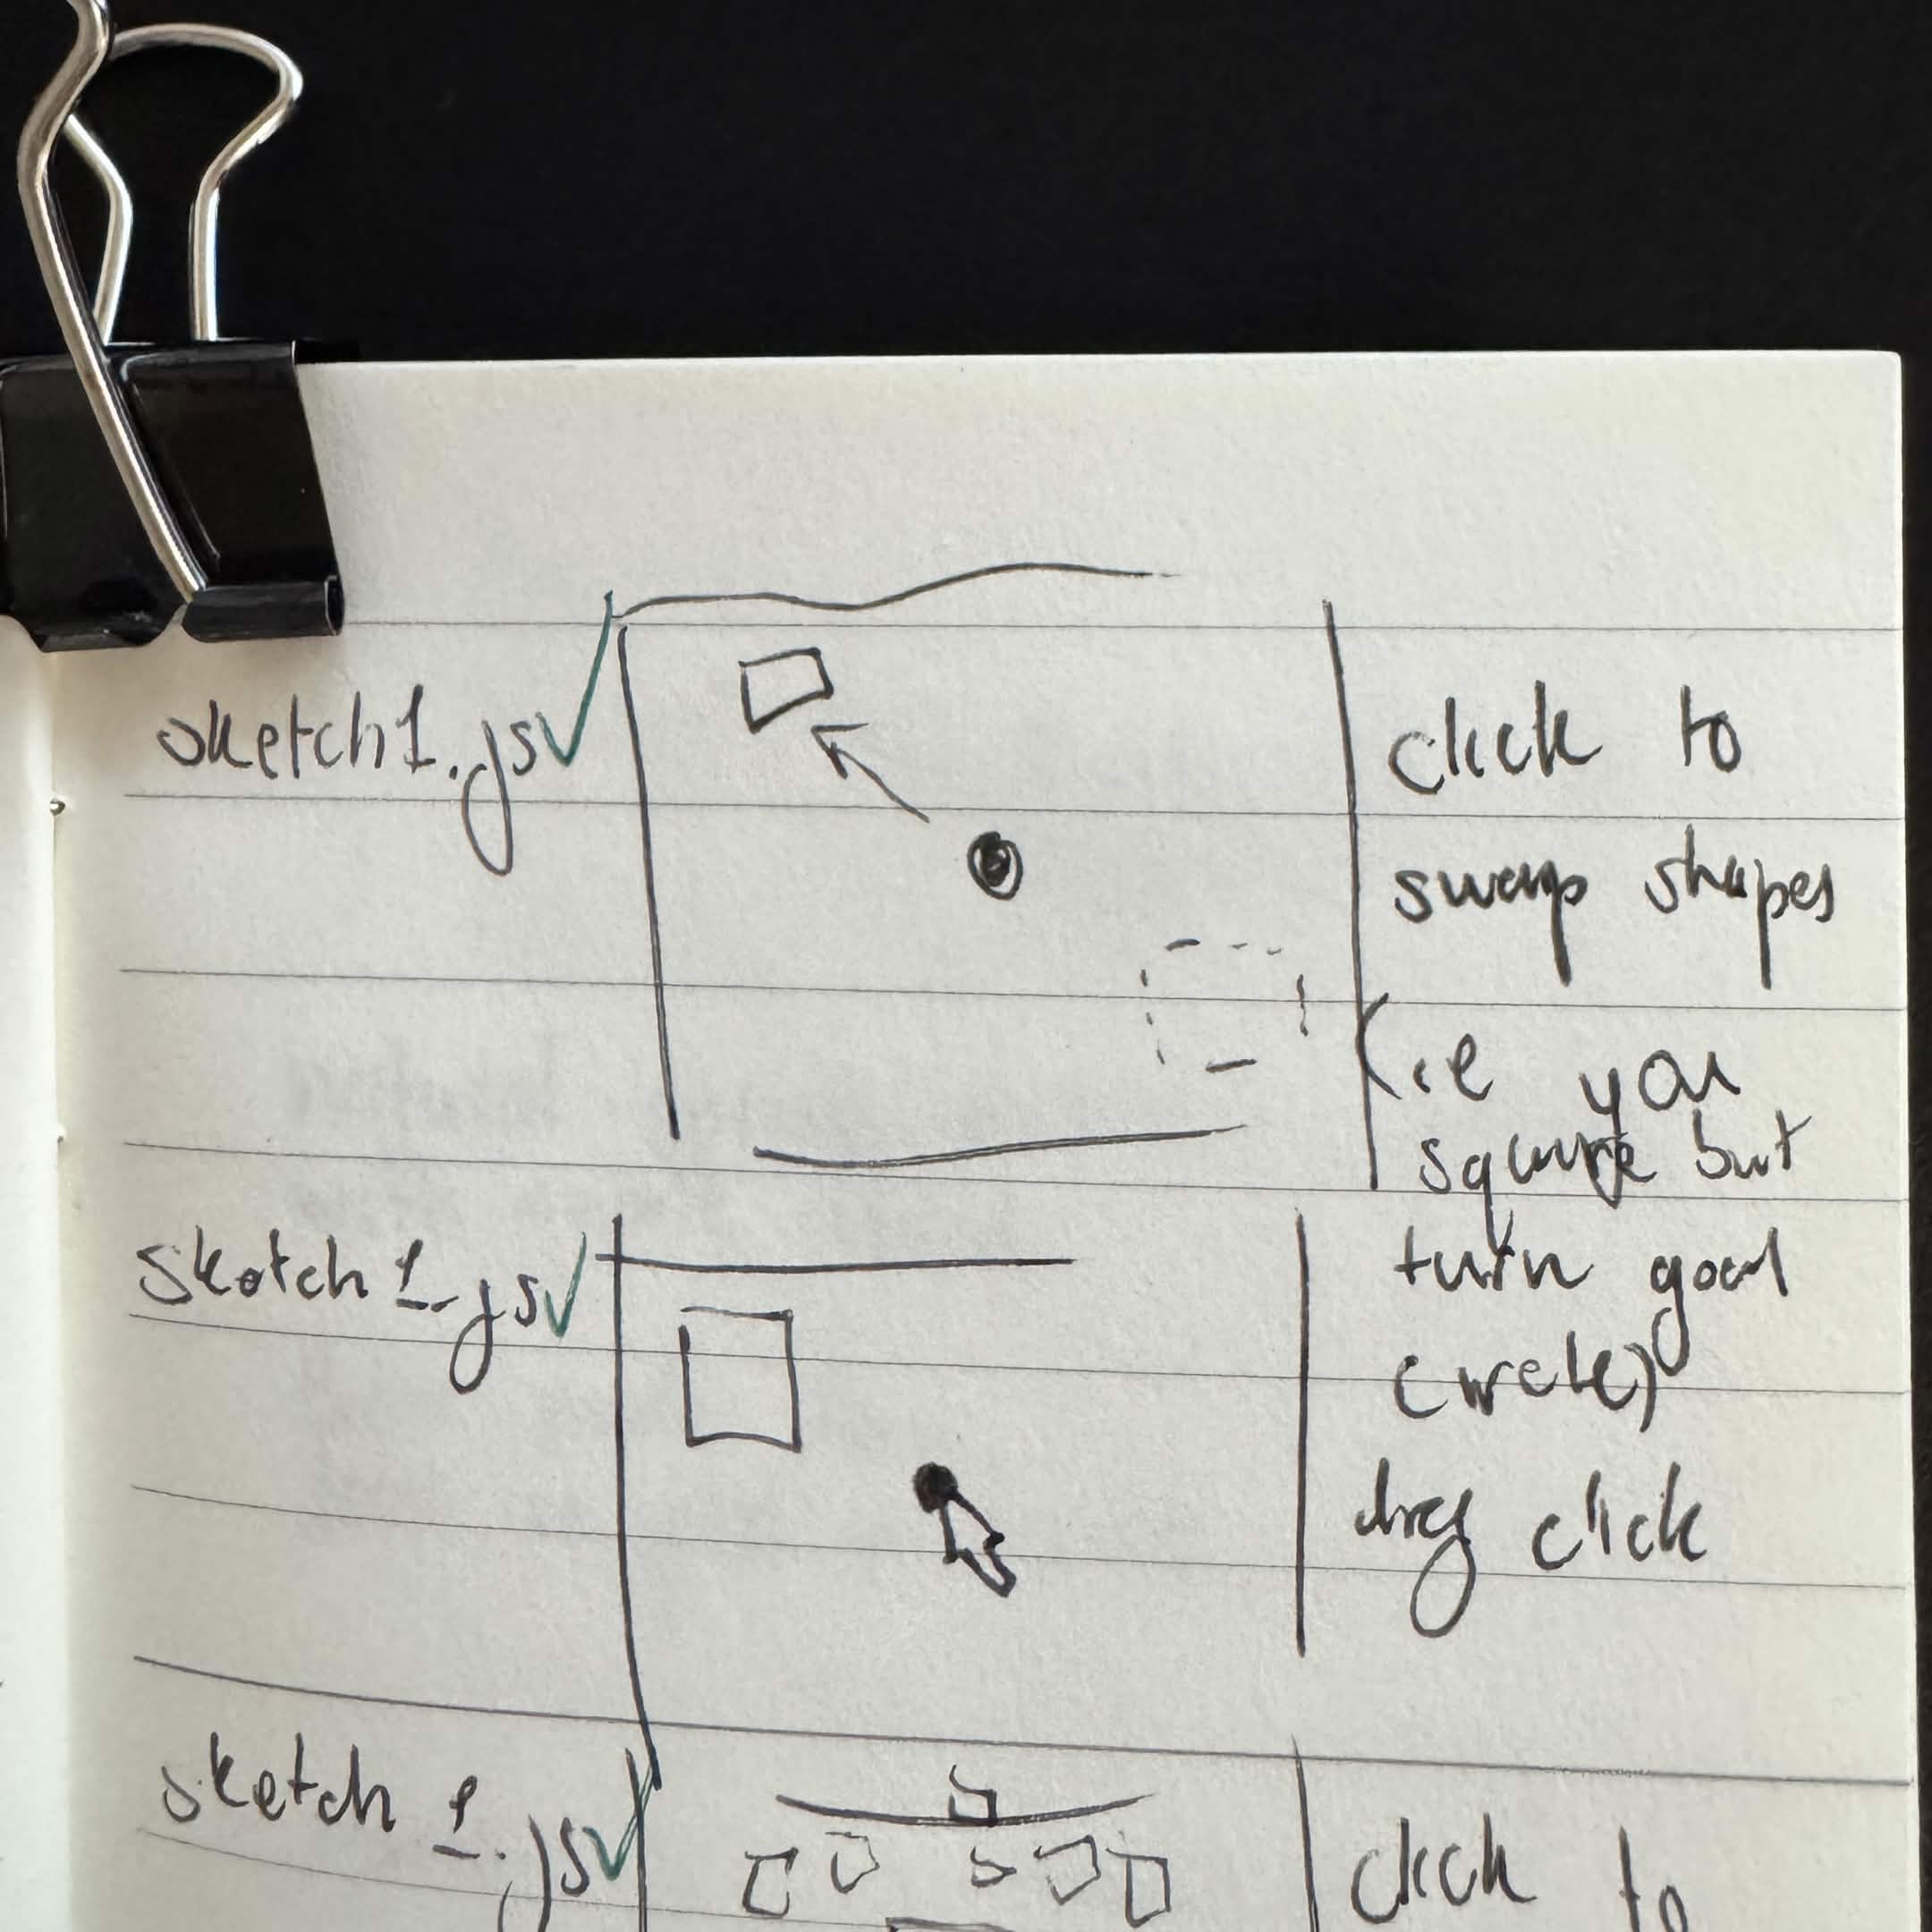 sketch1.js
click to
swap shapes
(ie you
square but
turn goal
circle)
sketch 1.js
drag click
sketch 1.js
click to